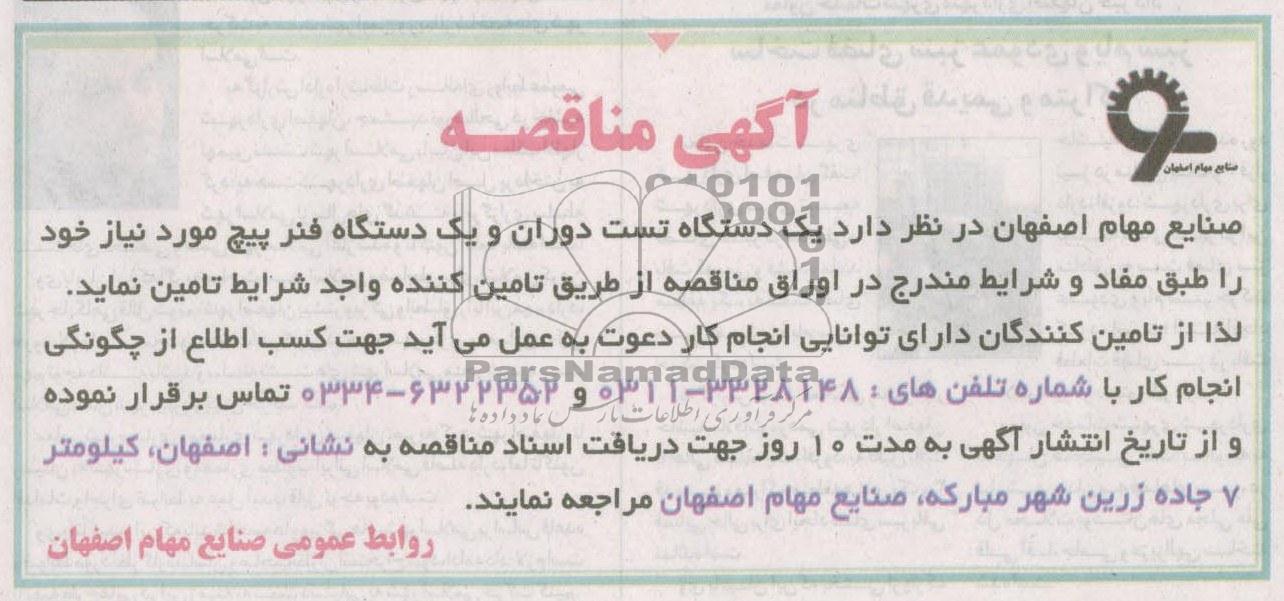 آگهی مناقصه
صنایع مهام اصفهان
صنایع مهام اصفهان در نظر دارد یک دستگاه تست دوران و یک دستگاه فنر پیچ مورد نیاز خود
را طبق مفاد و شرایط مندرج در اوراق مناقصه از طریق تامین کننده واجد شرایط تامین نماید.
لذا از تامین کنندگان دارای توانایی انجام کار دعوت به عمل می آید جهت کسب اطلاع از چگونگی
انجام کار با شماره تلفن های : ۳۳۲۸۱۴۸-۰۳۱۱ و ۶۳۲۲۳۵۲-۰۳۳۴ تماس برقرار نموده
و از تاریخ انتشار آگهی به مدت ۱۰ روز جهت دریافت اسناد مناقصه به نشانی : اصفهان، کیلومتر
۷ جاده زرین شهر مبارکه، صنایع مهام اصفهان مراجعه نمایند.
روابط عمومی صنایع مهام اصفهان
ParsNamadData
مرکز فرآوری اطلاعات پارس نماد داده ها